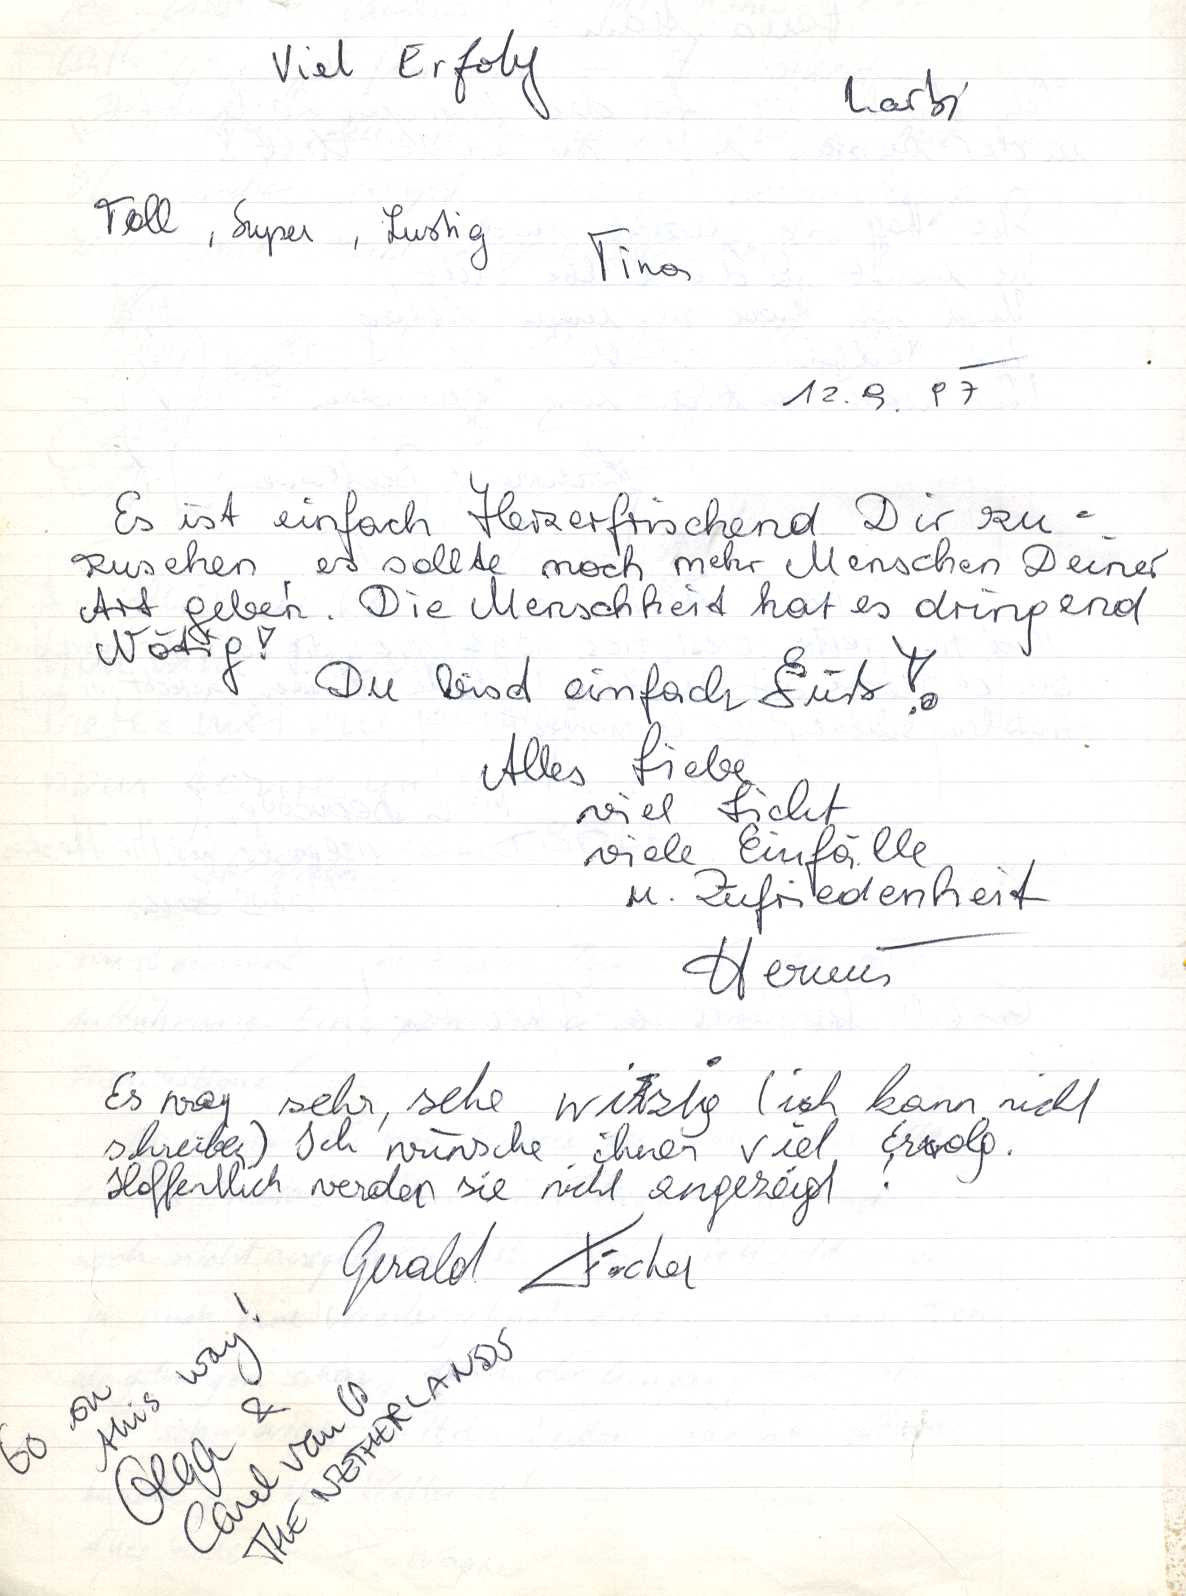 Viel Erfolg
Larbi
Toll, Super, Lustig
Tina
12.9.97
Es ist einfach Herzerfrischend Dir zu-
zusehen, es sollte noch mehr Menschen Deiner
Art geben. Die Menschheit hat es dringend
Nötig!
Du bisd einfach Süß!
Alles Liebe
viel Licht
viele Einfälle
u. Zufriedenheit
Es war sehr, sehr witzig (ich kann nicht
schreiben) Ich wünsche ihnen viel Erfolg.
Hoffentlich werden sie nicht angezeigt!
Gerald Fischer
Go on
this way!
Olga &
Carel van
THE NETHERLANDS